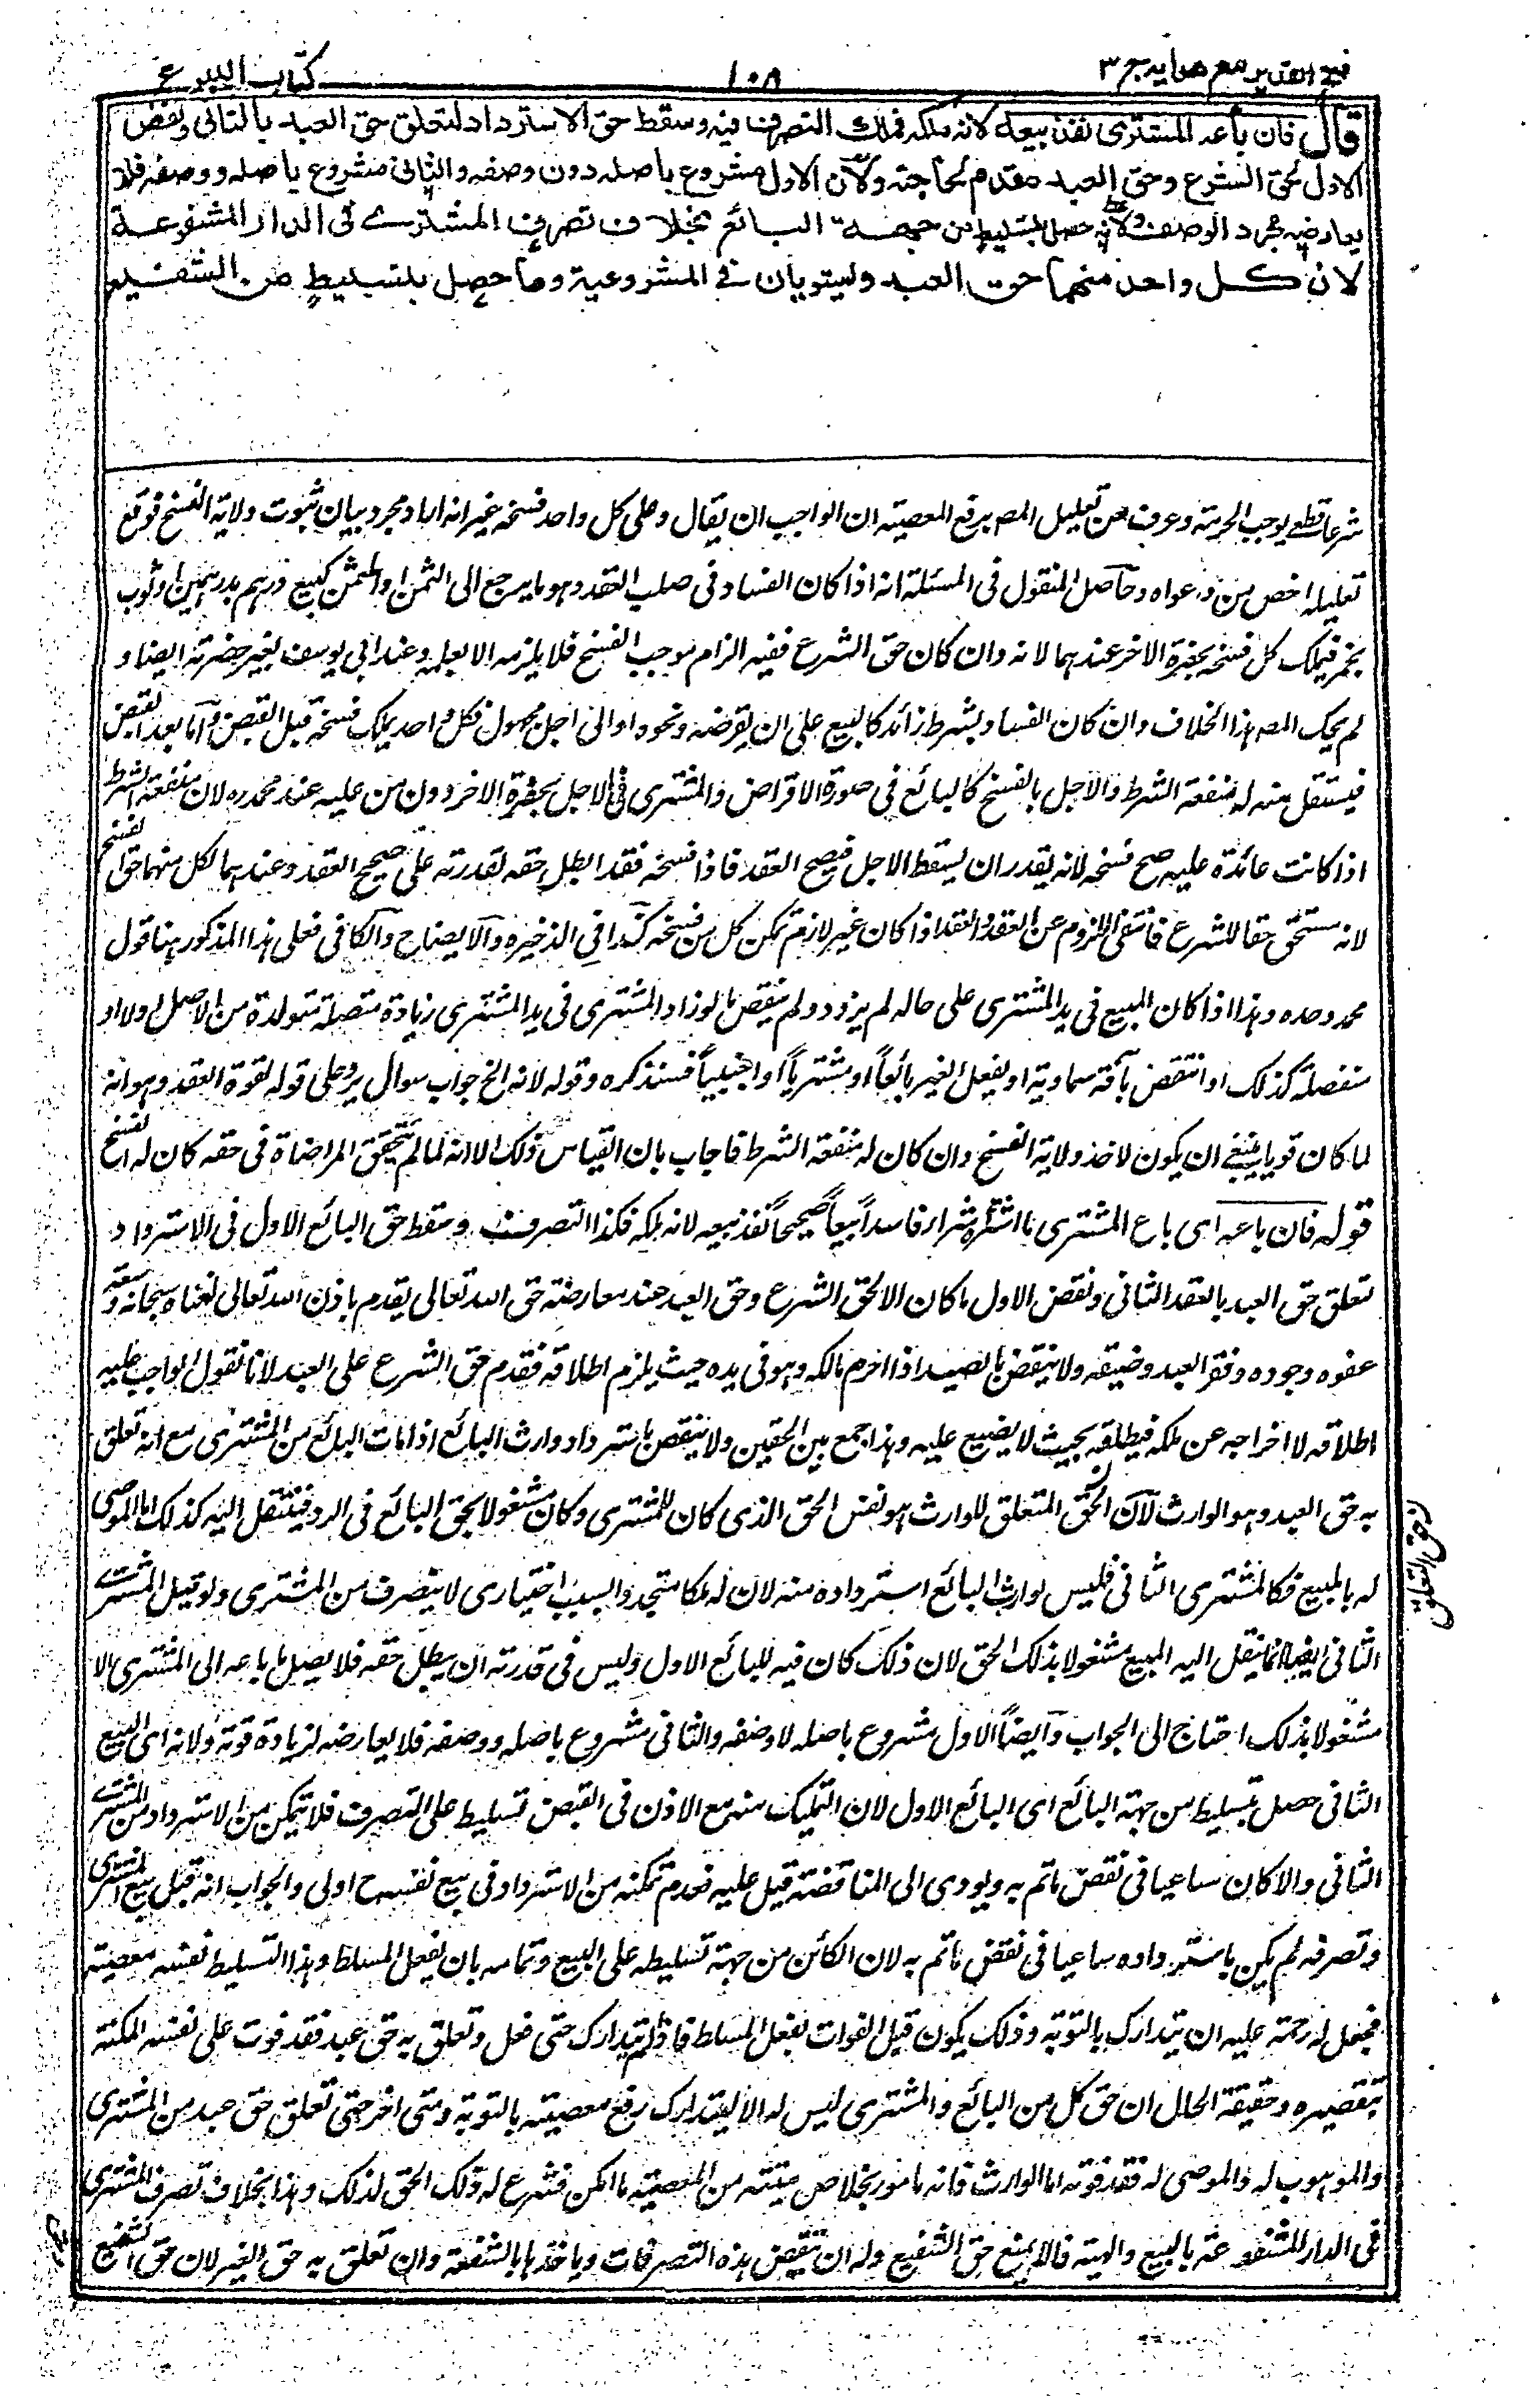 فتح القدير مع هدايه ج ٣
١٠٨
كتاب البيوع
قال فان باعه المشترى نفذ بيعه لانه ملكه فملك التصرف فيه وسقط حق الاسترداد لتعلق حق العبد بالثانى ونقض
الاول لحق الشرع وحق العبد مقدم لحاجته ولان الاول مشروع باصله دون وصفه والثانى مشروع باصله ووصفه فلا
يعارضه مجرد الوصف ولانه حصل بتسليط من جهة البائع بخلاف تصرف المشترى فى الدار المشفوعة
لان كل واحد منهما حق العبد ويستويان فى المشروعية وما حصل بتسليط من الشفيع
شرعا قطعى يوجب الحرمة وعرف من تعليل المص برفع المعصية ان الواجب ان يقال وعلى كل واحد فسخه غير انه اراد مجرد بيان ثبوت ولاية الفسخ فوقع
تعليله اخص من دعواه وحاصل المنقول فى المسئلة انه اذا كان الفساد فى صلب العقد وهو ما يرجع الى الثمن او المثمن كبيع درهم بدرهمين او ثوب
بخمر فيملك كل فسخه بحضرة الاخر عندهما لانه وان كان حق الشرع ففيه الزام موجب الفسخ فلا يلزمه الا بعلمه وعند ابى يوسف بغير حضرته ايضا و
لم يحك المص هذا الخلاف وان كان الفساد بشرط زائد كالبيع على ان يقرضه ونحوه او الى اجل مجهول فكل واحد يملك فسخه قبل القبض واما بعد القبض
فيستقل منه له منفعة الشرط والاجل بالفسخ كالبائع فى صورة الاقراض والمشترى فى الاجل بحضرة الاخر دون من عليه عند محمد ره لان منفعة الشرط
اذا كانت عائدة عليه صح فسخه لانه يقدر ان يسقط الاجل فيصح العقد فاذا فسخه فقد ابطل حقه لقدرته على تصحيح العقد وعندهما لكل منهما حق الفسخ
لانه مستحق حقا للشرع فانتفى اللزوم عن العقد والعقد اذا كان غير لازم تمكن كل من فسخه كذا فى الذخيره والايضاح والكافى فعلى هذا المذكور هنا قول
محمد وحده وهذا اذا كان المبيع فى يد المشترى على حاله لم يزدد ولم ينقص اما لو زاد المشترى فى يد المشترى زيادة متصلة متولدة من الاصل او لا او
منفصلة كذلك او انتقص بآفة سماوية او بفعل الغير بائعاً او مشترياً او اجنبياً فسنذكره وقوله لانه الخ جواب سوال يرد على قوله لقوة العقد وهو انه
لما كان قويا ينبغى ان يكون لاحد ولاية الفسخ وان كان له منفعة الشرط فاجاب بان القياس ذلك الا انه لما لم تتحقق المراضاة فى حقه كان له الفسخ
قوله فان باعه اى باع المشترى ما اشتراه شراء فاسدا بيعاً صحيحاً نفذ بيعه لانه ملكه فكذا التصرف وسقط حق البائع الاول فى الاسترداد
لتعلق حق العبد بالعقد الثانى ونقض الاول ما كان الا لحق الشرع وحق العبد عند معارضة حق الله تعالى يقدم باذن الله تعالى لغناه سبحانه وسعة
عفوه وجوده وفقر العبد وضيقه ولا ينتقض بالصيد اذا احرم مالكه وهو فى يده حيث يلزم اطلاقه فقدم حق الشرع على العبد لانا نقول الواجب عليه
اطلاقه لا اخراجه عن ملكه فيطلقه بحيث لا يضيع عليه وهذا جمع بين الحقين ولا ينتقض باسترداد وارث البائع اذا مات البائع من المشترى مع انه تعلق
به حق العبد وهو الوارث لان الحق المتعلق للوارث هو نفس الحق الذى كان للمشترى وكان مشغولا بحق البائع فى الرد فينتقل اليه كذلك اما الموصى
له بالمبيع فكالمشترى الثانى فليس لوارث البائع استرداده منه لان له ملكا متجدد السبب اختيارى لا يتصرف من المشترى ولو قيل المشترى
الثانى ايضا انما ينقل اليه المبيع مشغولا بذلك الحق لان ذلك كان فيه للبائع الاول وليس فى قدرته ان يبطل حقه فلا يصل ما باعه الى المشترى الا
مشغولا بذلك احتاج الى الجواب وايضاً الاول مشروع باصله لا وصفه والثانى مشروع باصله ووصفه فلا يعارضه لزيادة قوته ولانه اى البيع
الثانى حصل بتسليط من جهة البائع اى البائع الاول لان التمليك منه مع الاذن فى القبض تسليط على التصرف فلا يتمكن من الاسترداد من المشترى
الثانى والا كان ساعيا فى نقض ما تم به ويودى الى المناقضة قيل عليه فعدم تمكنه من الاسترداد فى بيع نفسه ح اولى والجواب انه قبل بيع المشترى
وتصرفه لم يكن باسترداده ساعيا فى نقض ما تم به لان الكائن من جهة تسليطه على البيع وتمامه بان يفعل المسلط وهذا التسليط نفسه معصيته
فجعل له رحمة عليه ان يتدارك بالتوبة وذلك يكون قبل الفوات بفعل المسلط فاذا لم يتدارك حتى فعل وتعلق به حق عبد فقد فوت على نفسه المكنة
بتقصيره وحقيقة الحال ان حق كل من البائع والمشترى ليس له الا ليتدارك رفع معصيته بالتوبة ومتى اخر حتى تعلق حق عبد من المشترى
والموهوب له والموصى له فقد فوته اما الوارث فانه مامور بخلاص ميته من المعصية ما امكن فشرع له ذلك الحق لذلك وهذا بخلاف تصرف المشترى
فى الدار المشفوعة بالبيع والهبة فالا يمنع حق الشفيع وله ان ينقض هذه التصرفات وياخذها بالشفعة وان تعلق به حق الغير لان حق الشفيع